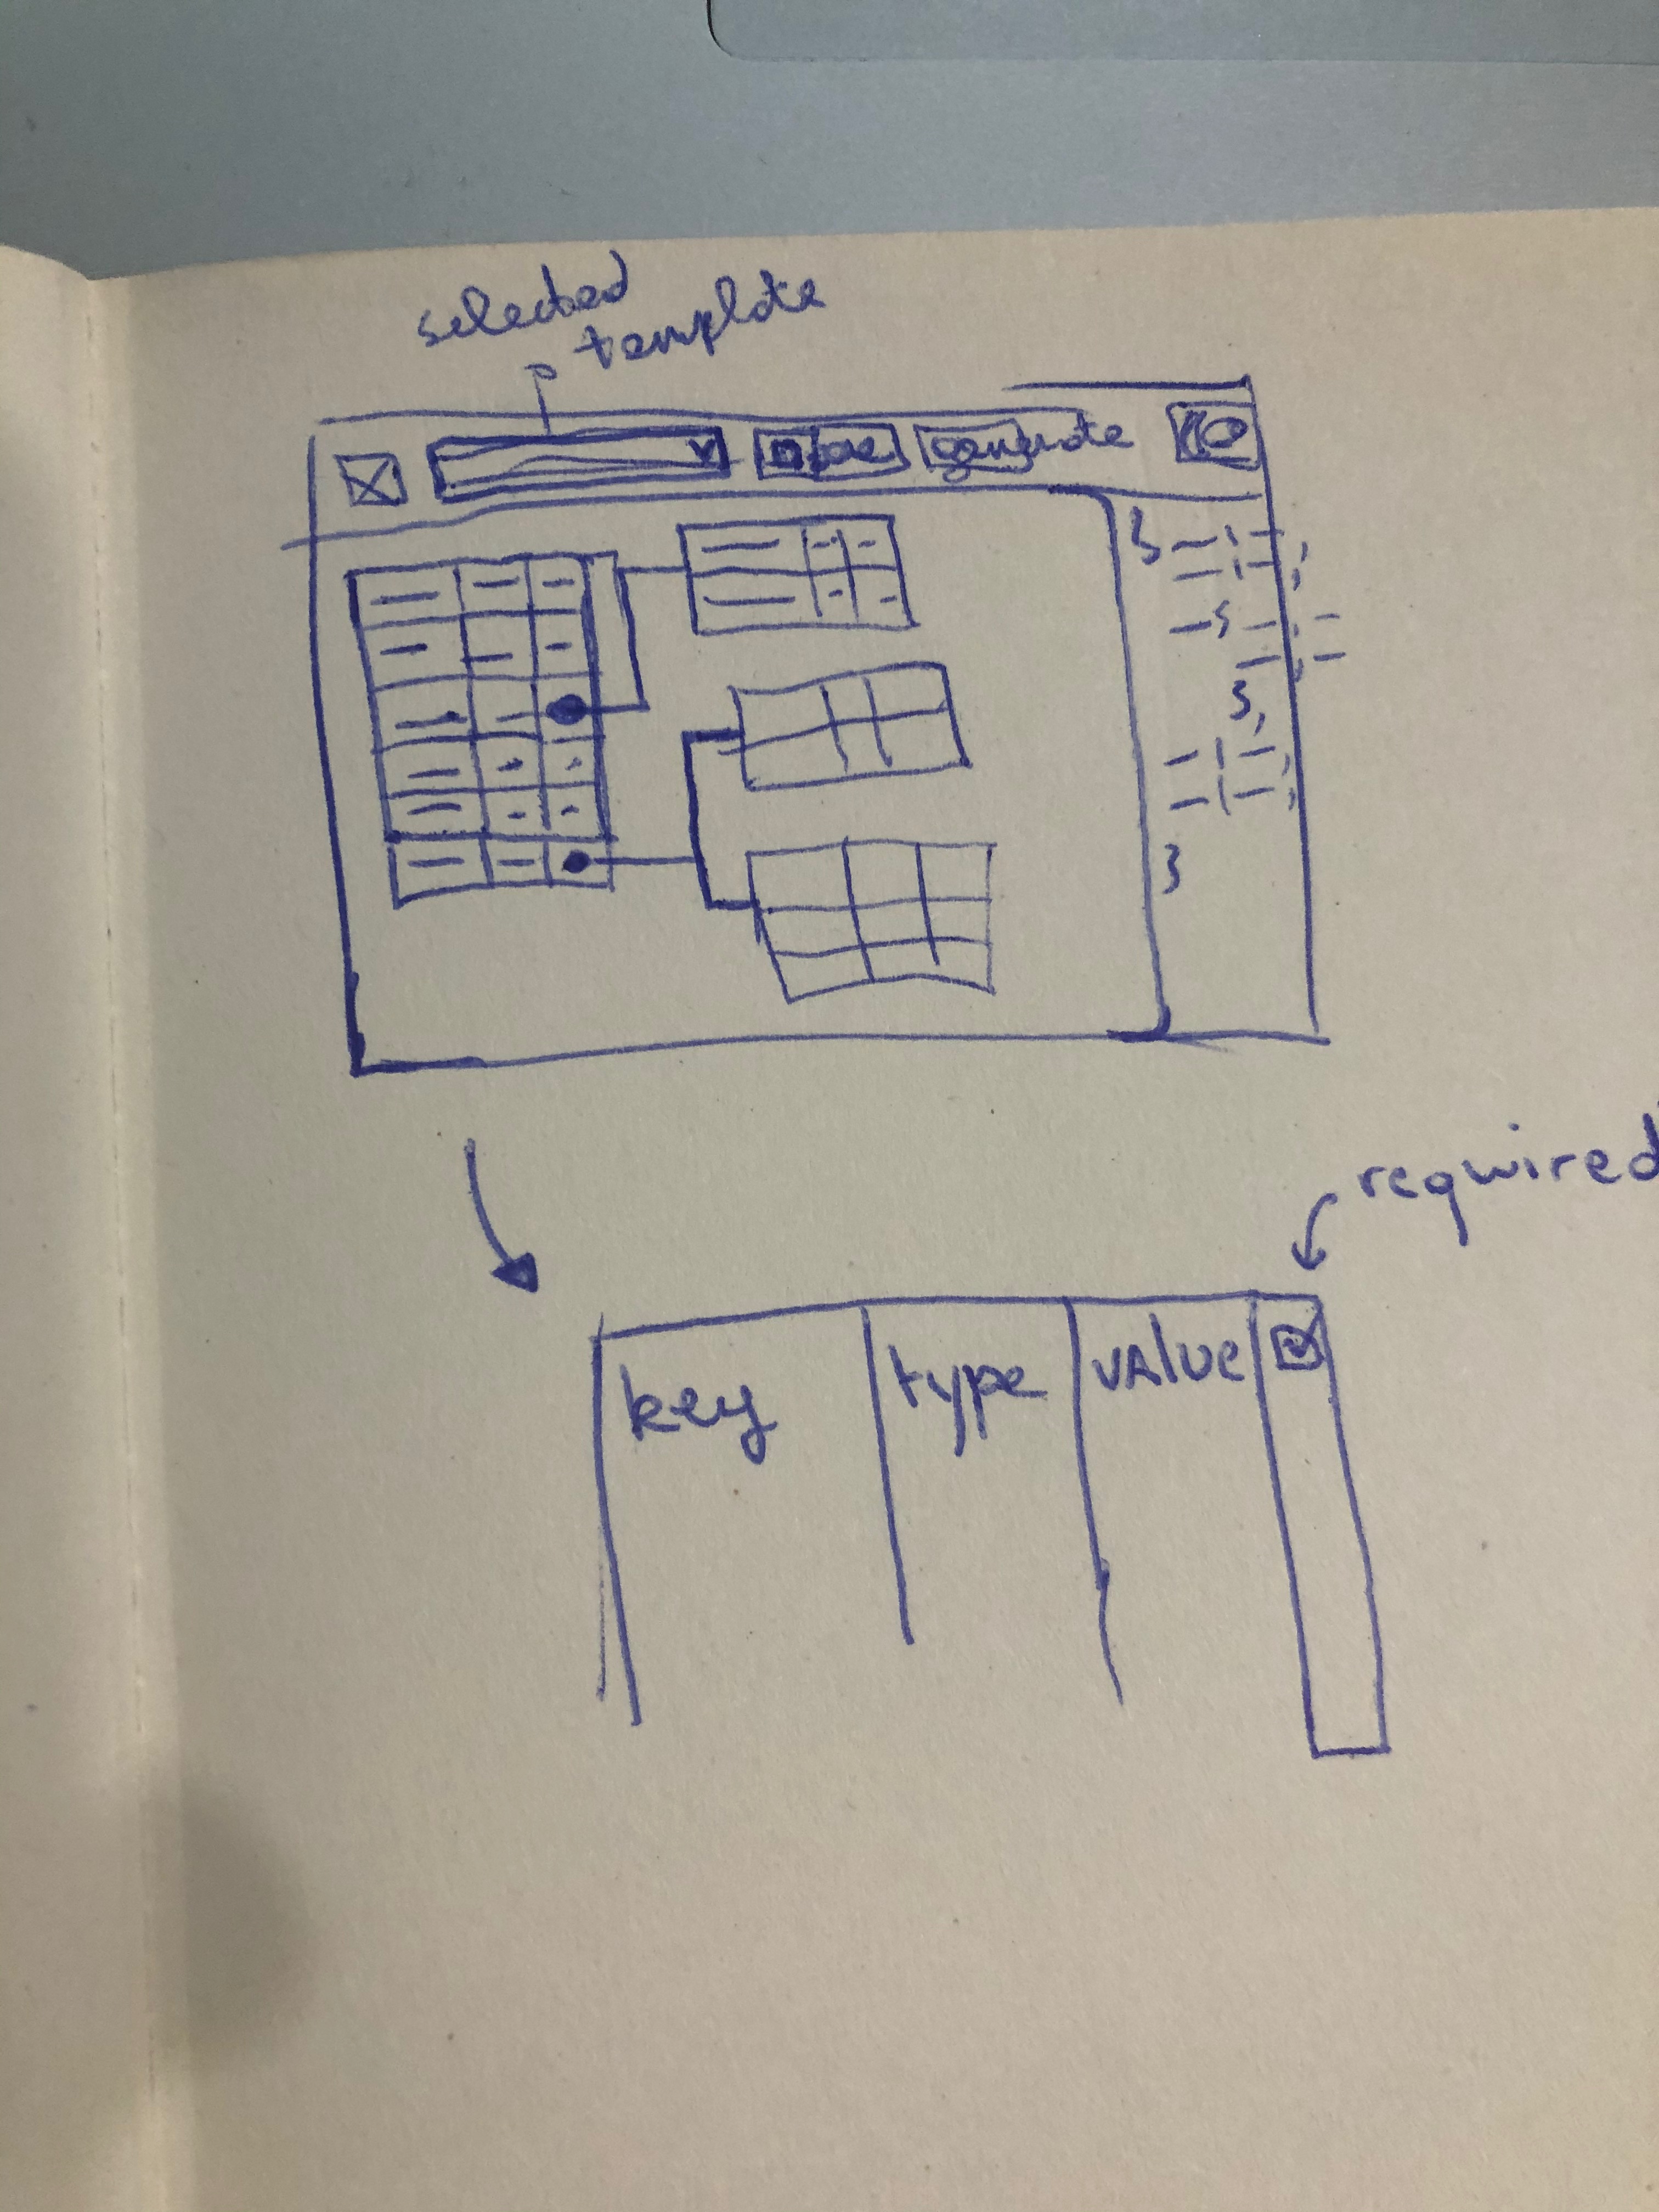 selected
template
generate
required
key type value